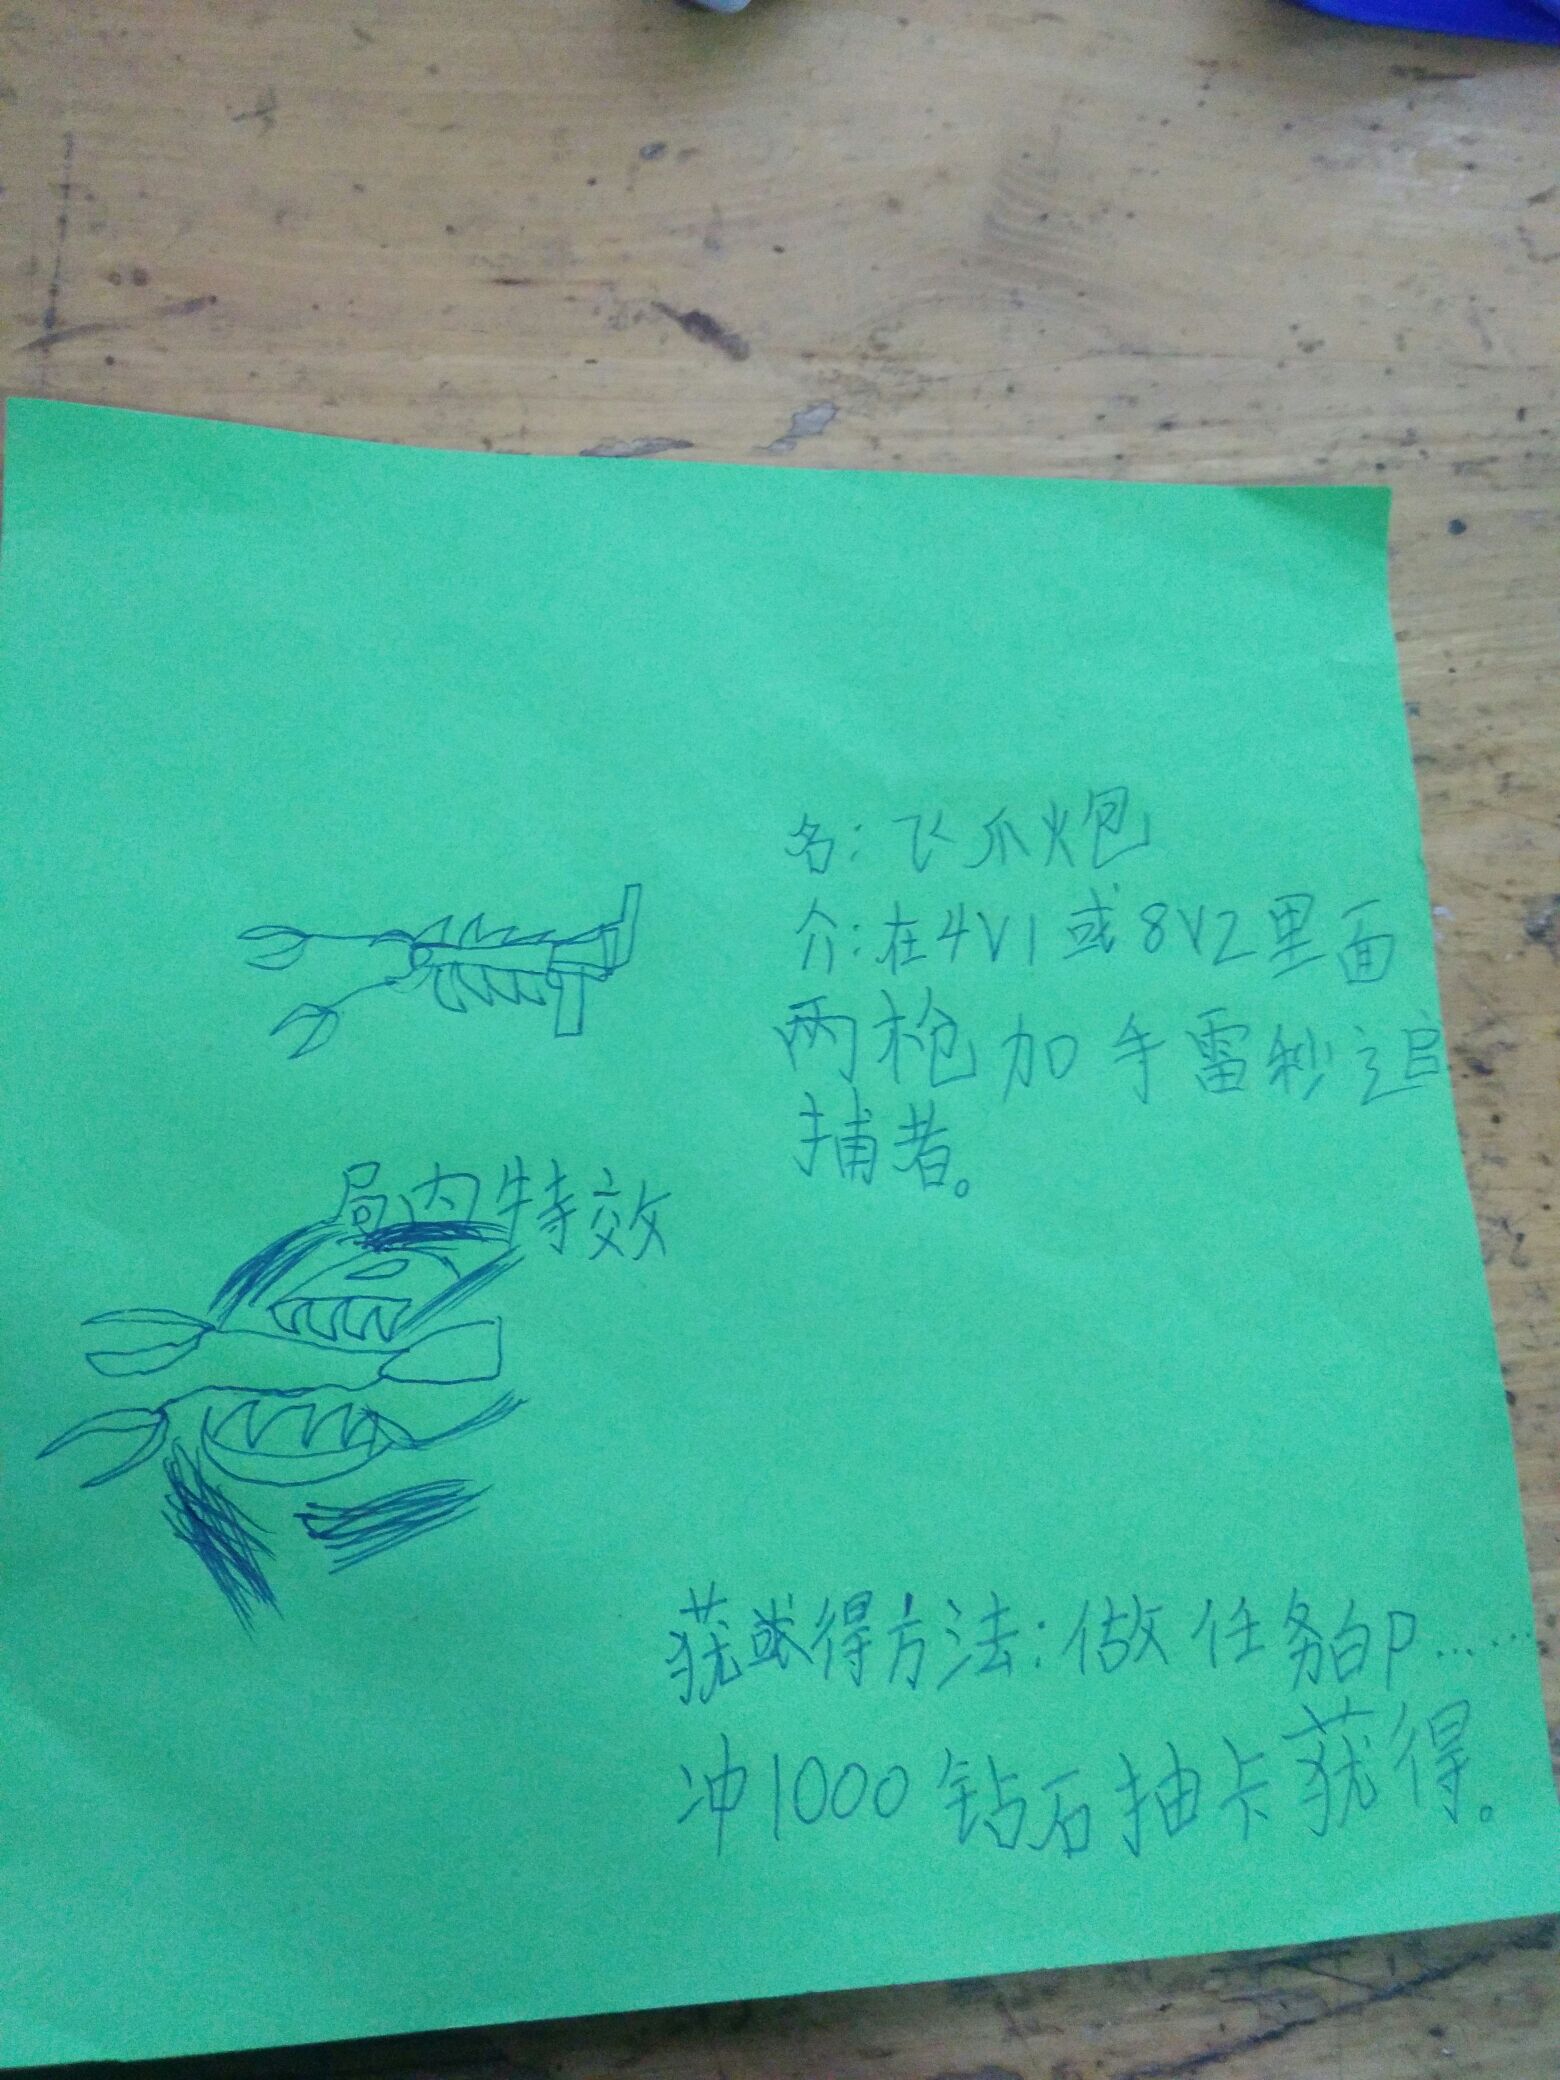 名：飞爪炮
介：在4V1或8V2里面
两枪加手雷秒追
捕者。
局内特效
获得方法：做任务即……
冲1000钻石抽卡获得。